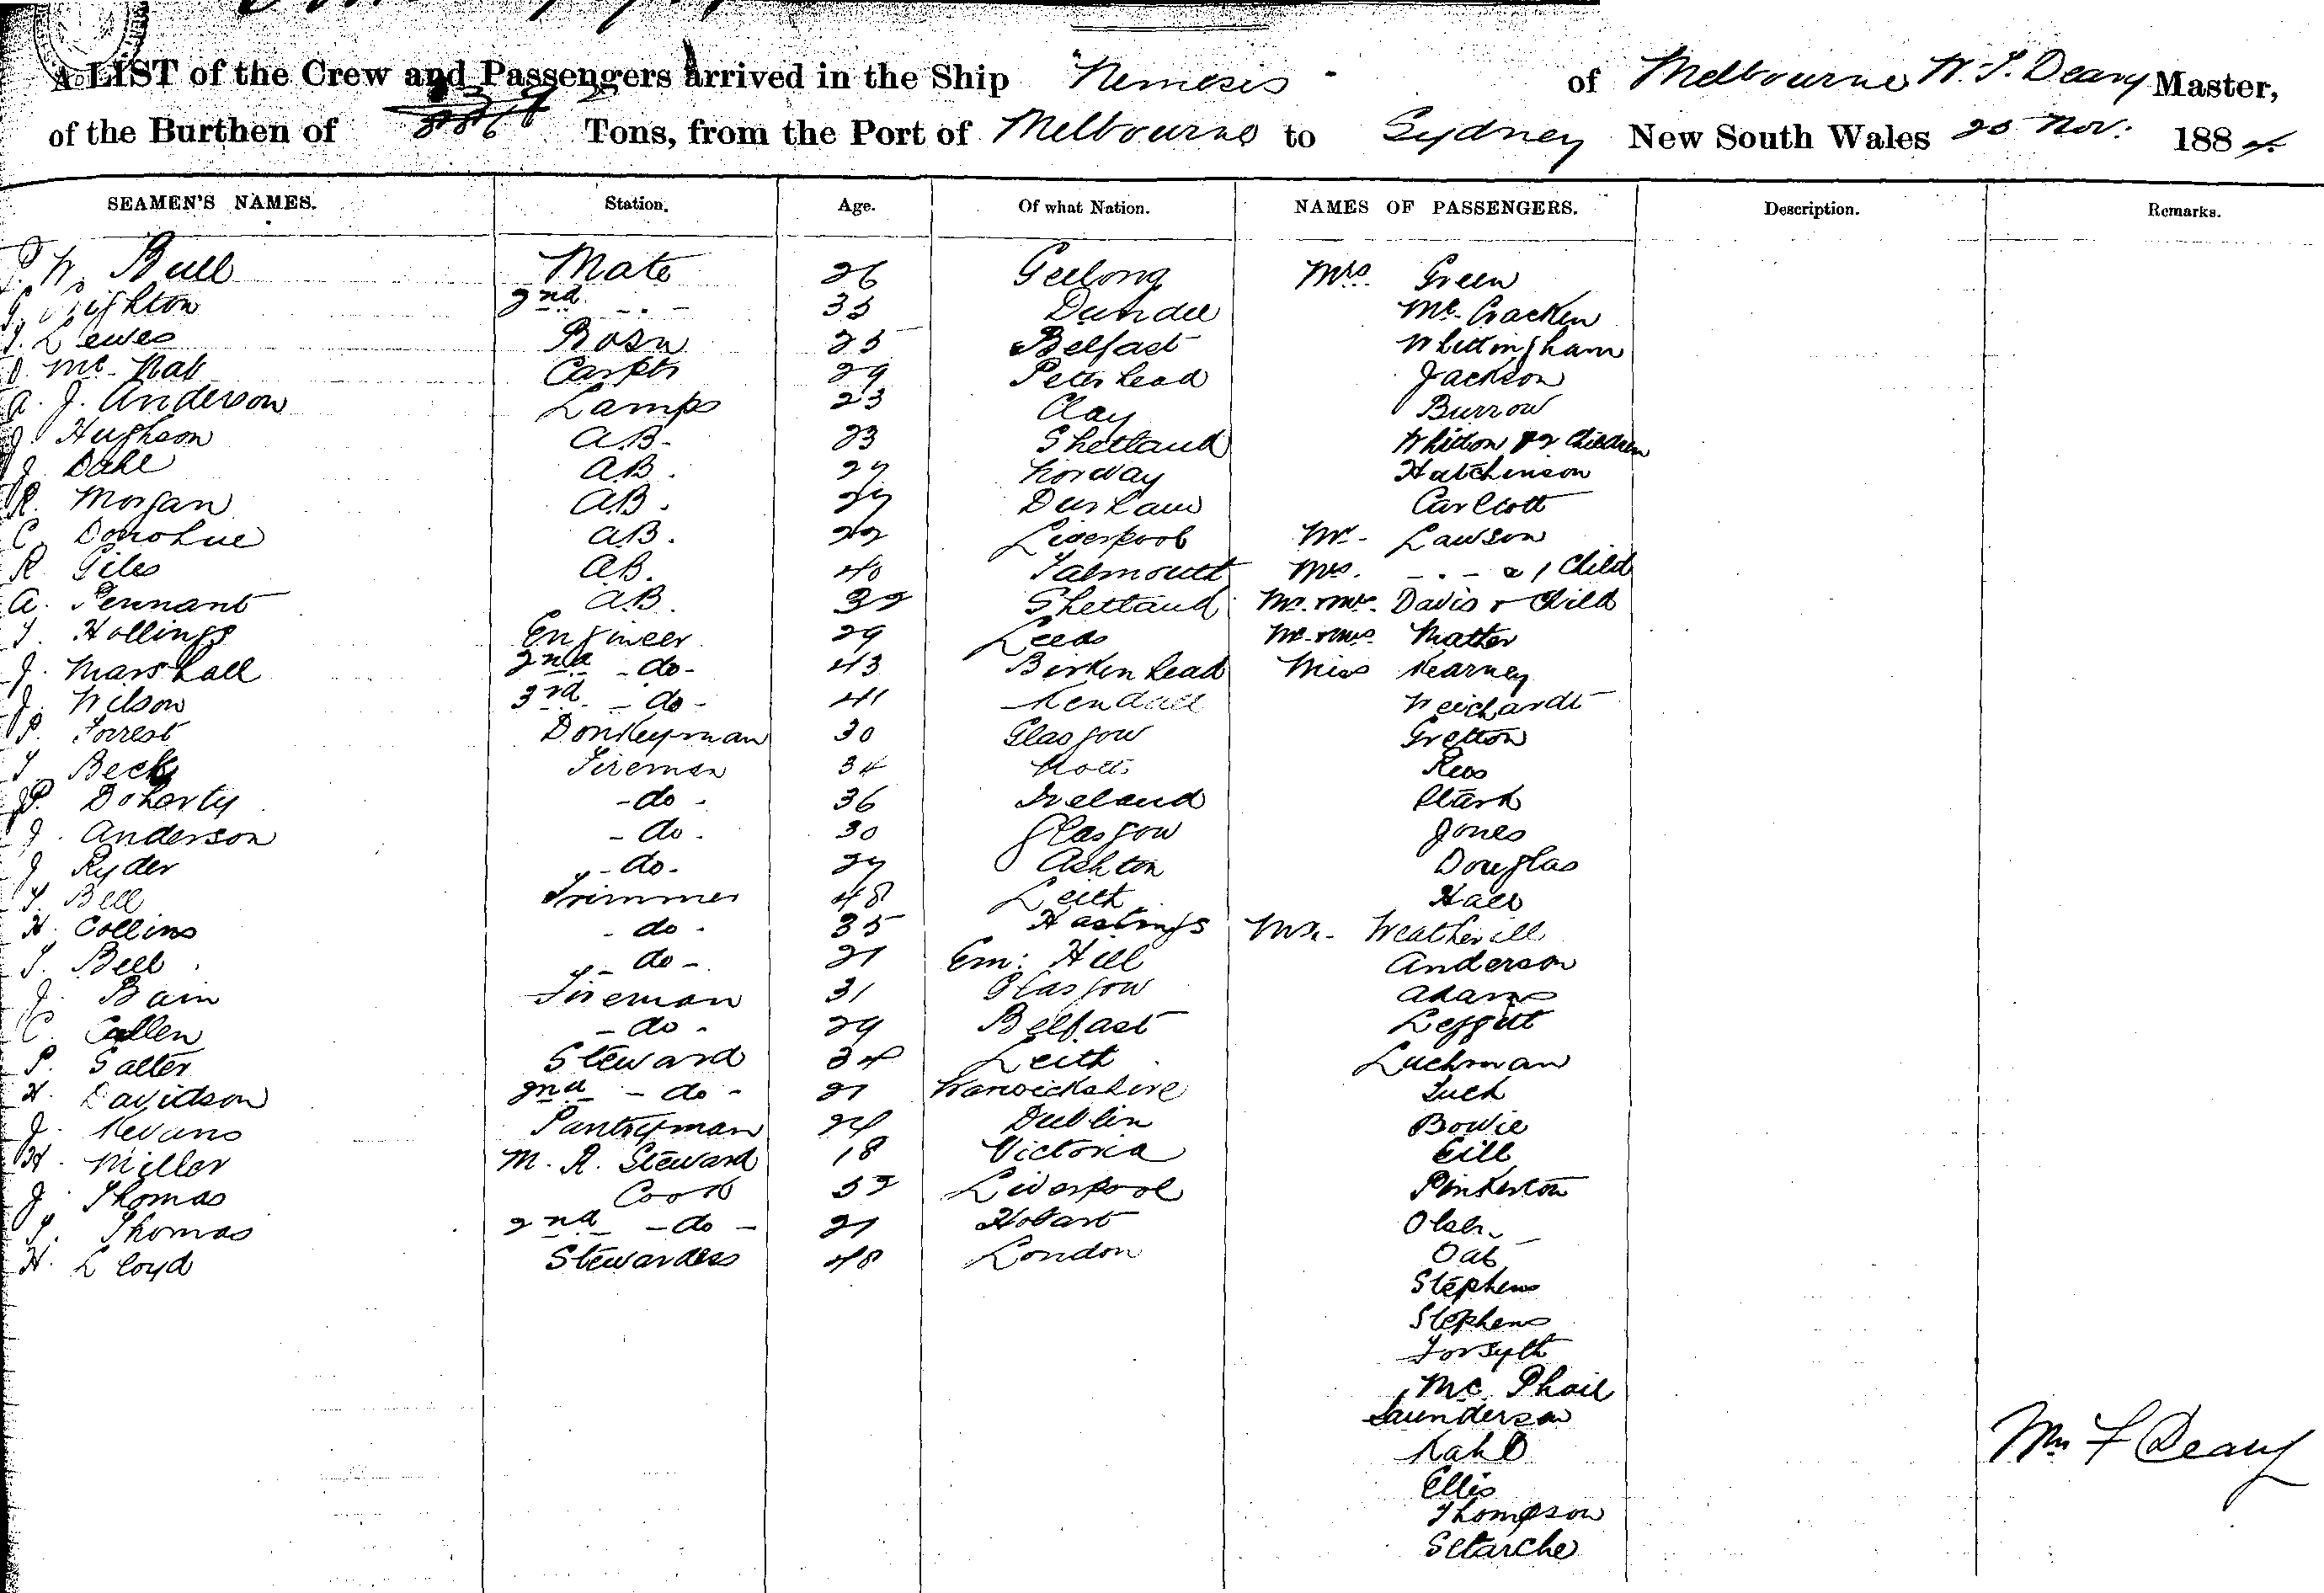 A LIST of the Crew and Passengers arrived in the Ship "Nemesis" of Melbourne W. F. Deary Master,
of the Burthen of Tons, from the Port of Melbourne to Sydney New South Wales 25 Nov: 1884
SEAMEN'S NAMES. Station. Age. Of what Nation. NAMES OF PASSENGERS. Description. Remarks.
W. Bull Mate 26 Geelong Mrs. Green
2nd - . - 35 Dundee Mc. Cracken
L ewes Bosn 25 Belfast Whittingham
Mc. Nab Carptr 29 Peterhead Jackson
A. J. Anderson Lamps 23 Clay Burrow
J. Hughson AB. 23 Shetland Whitton & 2 Children
J. Dahl AB. 27 Norway Hutchinson
R. Morgan AB. 27 Durham Carlcott
C. Donohue AB. 22 Liverpool Mr. Lawson
R. Giles AB. 40 Falmouth Mrs. - . - & 1 Child
A. Pennant AB. 32 Shetland Mr. & Mrs. Davis & Child
T. Hollings Engineer 29 Leeds Mr. & Mrs. Matter
J. Marshall 2nd - do - 43 Birkenhead Miss Kearney
J. Wilson 3rd - do - 41 Kendall Weichardt
P. Forrest Donkeyman 30 Glasgow Gretton
T. Beck Fireman 34 Notts Rees
P. Doherty - do - 36 Ireland Clark
J. Anderson - do - 30 Glasgow Jones
J. Ryder - do - 27 Ashton Douglas
T. Bell Trimmer 48 Leith Hall
H. Collins - do - 35 Hastings Mr. Weatherill
T. Bell - do - 21 Em: Hill Anderson
J. Bain Fireman 31 Glasgow Adams
C. Cullen - do - 29 Belfast Leggett
P. Salter Steward 34 Leith Luchman
H. Davidson 2nd - do - 21 Warwickshire Tuck
J. Kevans Pantryman 24 Dublin Bowie
H. Miller M. R. Steward 18 Victoria Gill
J. Thomas Cook 32 Liverpool Pinkerton
T. Thomas 2nd - do - 21 Hobart Olsen
H. Lloyd Stewardess 48 London Oat
Stephens
Stephens
Forsyth
Mc. Phail
Saunderson
Kahl
Wm F Deary
Ellis
Thompson
Starche